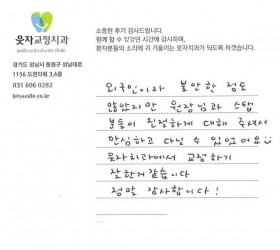 웃자교정치과
소중한 후기 감사드립니다.
함께 할 수 있었던 시간에 감사하며,
환자분들의 소리에 귀 기울이는 웃자치과가 되도록 하겠습니다.
경기도 성남시 중원구 성남대로
1156 도원타워 3,4층
031 606 0282
letssmile.co.kr
외국인이라 불안한 점도
많았지만 원장님과 스탭
분들이 친절하게 대해 주셔서
안심하고 다닐 수 있었어요
웃자치과에서 교정하기
잘한거 같습니다
정말 감사합니다!